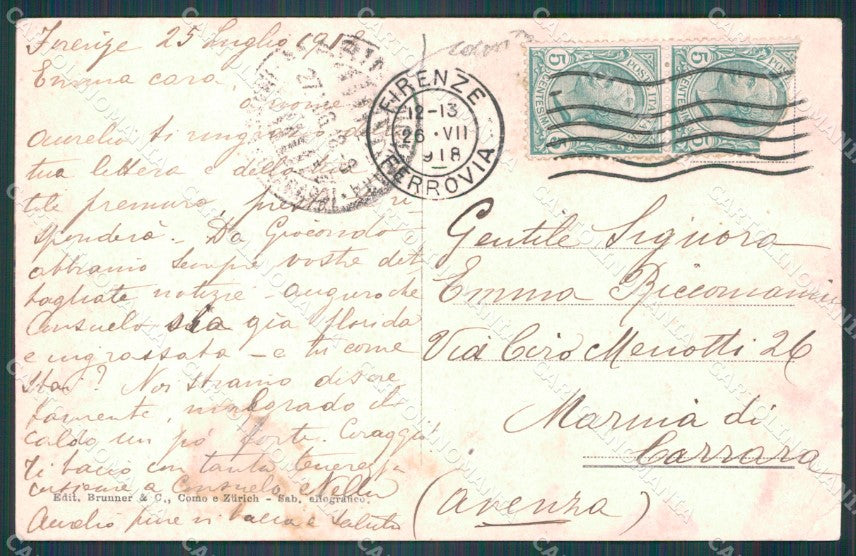 Firenze 25 Luglio 1918
Emma cara,
Aurelio ti ringrazio della
tua lettera e della
tile premura, ri-
sponderà - Da Giocondo
abbiamo sempre vostre det-
tagliate notizie - auguro che
Consuelo sia già florida
e ingrassata - e tu come
stai? Noi stiamo discre-
tamente, malgrado il
caldo un pò forte. Coraggio
Ti bacio con tanta tenerezza
insieme a Consuelo Nella
Edit. Brunner & C., Como e Zürich - Sab. eliografico.
Aurelio pure vi bacia e saluta
FIRENZE
12-13
26·VII
918
FERROVIA
5
POSTE ITALIANE
CENTESIMI
5
5
POSTE
CENTESIMI
5
Gentile Signora
Emma Riccomanni
Via Ciro Menotti 26
Marina di
Carrara
(Avenza)
CARTOLINOMANIA